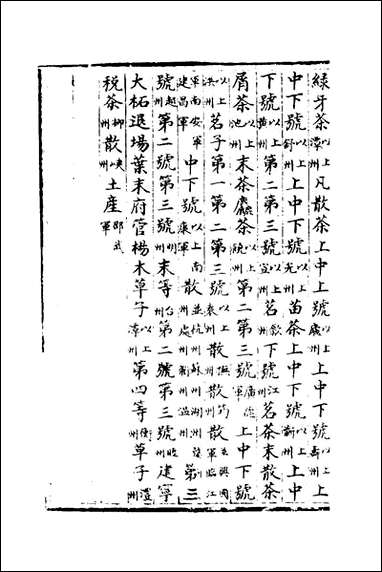 綠牙茶以上漳州凡散茶上中上號以上廬州上中下號以上壽州上
中下號以上舒州上中下號以上光州苗茶上中下號以上蘄州上中
下號以上黃州第二第三號以上宣州茗歙州下號江州茗茶末散茶
屑茶以上池州末茶麤茶以上饒州第二第三號廣德軍上中下號
以上洪州茗子第一第二第三號以上袁州散撫筠州散興國軍臨江
軍南安軍建昌軍中下號以上南康軍散並杭州蘇州湖州婺州處州衢州溫州第三
號越州第二號第三號明州末等台州第二號第三號睦州建寧
大柘退場葉末府管楊木草子以上漳州第四等衡州草子澧州
稅茶柳州散峽州土産邵武軍